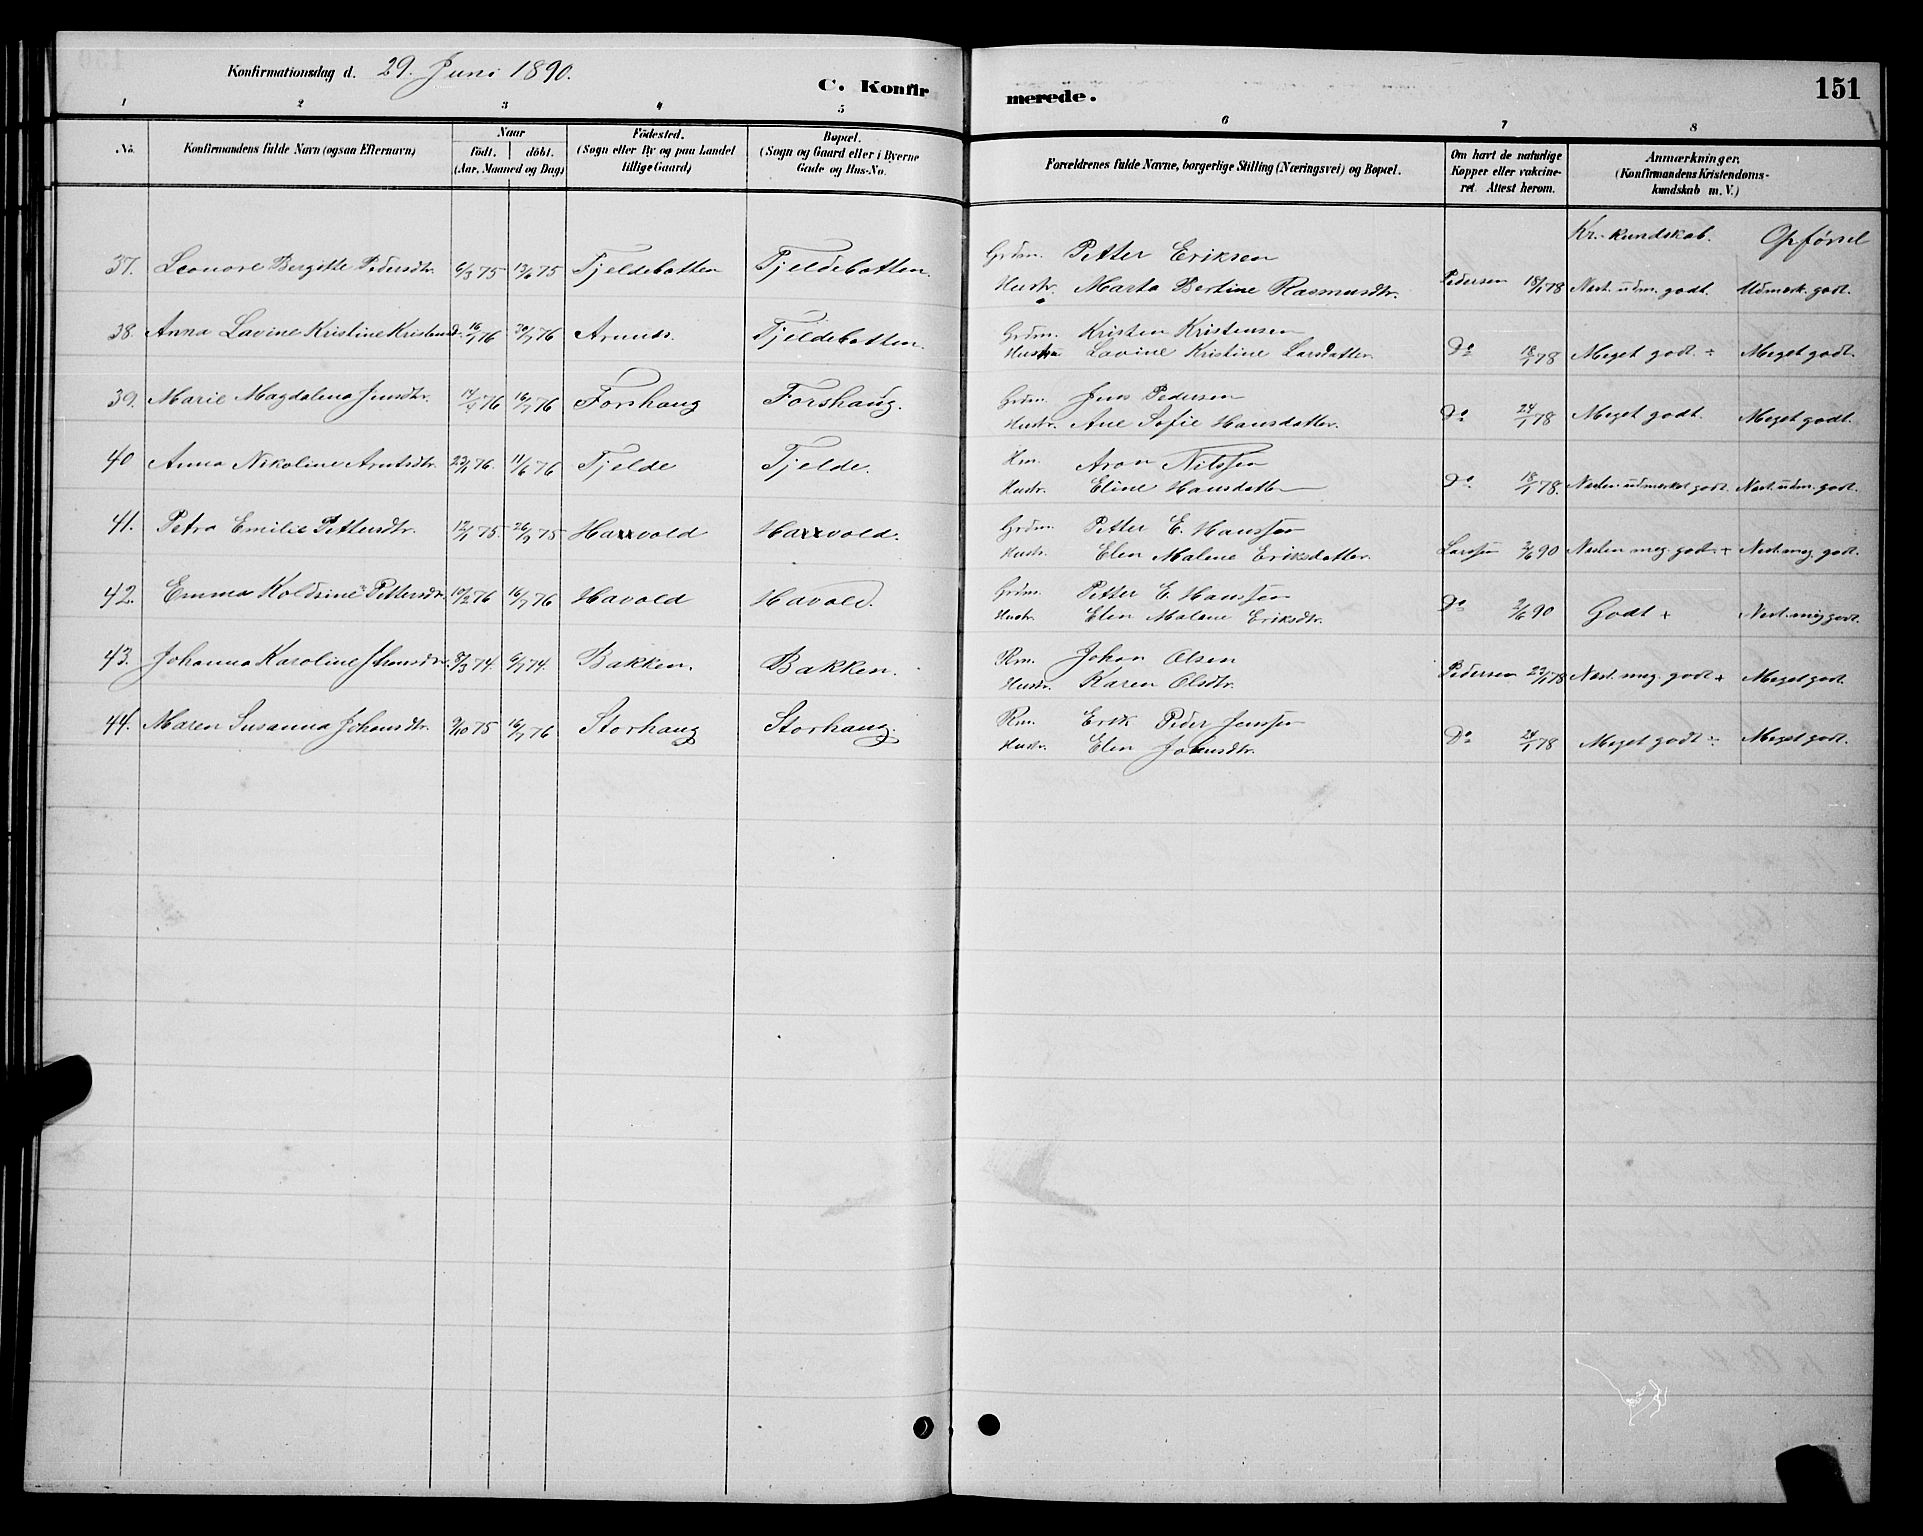 Konfirmationsdag d. 29. Juni 1890.
C. Konfirmerede.
151
1 2 3 4 5 6 7 8
No.
Konfirmandens fulde Navn (ogsaa Efternavn)
Naar
födt. döbt.
(Aar, Maaned og Dag)
Födested.
(Sogn eller By og paa Landet
tillige Gaard)
Bopæl.
(Sogn og Gaard eller i Byerne
Gade og Hus-No.
Forældrenes fulde Navne, borgerlige Stilling (Næringsvei) og Bopæl.
Om havt de naturlige
Kopper eller vakcine-
ret. Attest herom.
Anmærkninger.
(Konfirmandens Kristendoms-
kundskab m. V.)
Kr.-kundskab. Opførsel
37. Leonore Bergitte Pedersdtr. 6/3 75 13/6 75 Fjeldebotten Fjeldebotten. Grdm. Petter Eriksen
Hustr. Marta Bertine Rasmusdtr. Pedersen 18/1 78 Næst. udm. godt. Udmærk. godt.
38. Anna Lavine Kristine Kristensd. 16/1 76 30/7 76 Arnnes. Fjeldebotten. Grdm. Kristen Kristensen
Hustru Lavine Kristine Larsdatter Do 18/1 78 Meget godt ÷ Meget godt.
39. Marie Magdalena Jensdtr. 14/4 76 16/7 76 Forshaug Forshaug. Grdm. Jens Pedersen
Hustr. Ane Sofie Hansdatter. Do 24/1 78 Meget godt. Meget godt.
40 Anna Nikoline Arntsdtr. 23/1 76. 11/6 76 Fjelde Fjelde. Hm. Aron Nilssen
Hustr. Eline Hansdatter Do 18/1 78. Næsten udmærket godt. Næst. udm. godt.
41. Petra Emilie Pettersdtr. 12/1 75. 26/9 75 Havold Havold. Grdm. Petter E. Hanssen
Hustr. Elen Malene Eriksdatter Larssen 2/6 90 Næsten meg. godt + Næst. meg. godt.
42. Emma Koldrine Pettersdtr. 10/2 76 16/7 76 Havold Havold. Grdm. Petter E. Hanssen
Hustr. Elen Malene Eriksdtr. Do 2/6 90 Godt + Næst. meg godt.
43. Johanna Karoline Johansdtr. 8/3 74. 6/4 74. Bakken. Bakken. Rm. Johan Olsen
Hustr. Karen Olsdtr. Pedersen 22/1 78 Næst. meg. godt + Meget godt.
44. Maren Susanna Johansdtr. 9/10 75 16/7 76 Storhaug Storhaug. Rm. Erik Peder Jenssen
Hustr. Elen Johnsdtr. Do 24/1 78 Meget godt ÷ Meget godt.